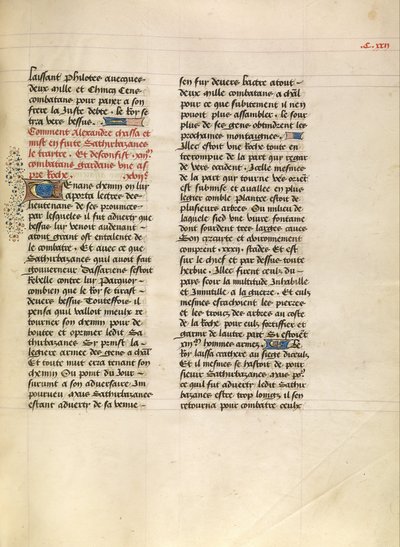 .C. xxii
laissant philotes avecques
deux mille et Chincq Cens
combatans pour payer a son
frere la Juste debte. le Roy se
tira vers bessus.
Comment Alexandre chassa et
mist en fuite Sathirbazanes
le tiartre. Et desconfist .xiii.m
combatans gardans une as
pre Roche. .xviii.
Tenans chemin on luy
aporta lettres des
lieutenans de ses prouinces
par lesquelles il fut aduerty que
bessus luy venoit audeuant
atout grant ost entalente de
le combatre. Et auec ce que
Sathirbazanes quil auoit fait
gouuerneur Dassariens sestoit
Rebelle contre luy Parquoy
combien que le Roy se tirast
deuers bessus Toutesfois il
pensa quil valloit mieulx re
tourner son chemin pour de
bouter et opprimer ledit Sa
thirbazanes Sy prinst la
legiere armee des gens a chual
Et toute nuit erra tenant son
chemin Ou point du Jour
suruint a son aduersaire Im
pourueu Mais Sathirbazanes
estant aduerty de sa venue
sen fuy deuers bactre atout
deux mille combatans a chual
pour ce que subitement il nen
pouoit plus assambler. le sour
plus de ses gens obtindrent les
prochaines montaignes.
Illec estoit une Roche toute en
terrompue de la part qui regar
de vers occident. Icelle mesmes
de la part qui tourne vers orient
est submise et auallee en plus
legier comble Plantee estoit de
plusieurs arbres Ou milieu de
laquelle sied une viue fontaine
dont sourdent tres larges eaues
Son circuite et auironnement
comprent .xxxii. stades Et est
sur le chief et par dessus toute
herbue. Illec firent ceulx du
pays seoir la multitude Inhabille
et Inmutille a la guerre. Et eulx
mesmes esrachoient les pierres
et les troncs des arbres au coste
de la Roche pour eulx fortifier et
garnir de lautre part Si estoient
xiii.m hommes armez. Le
Roy laissa crathere au siege diceulx
Et il mesmes se hastoit de pour
sieuir Sathirbazanes Mais pour
ce quil fut aduerty ledit Sathir
bazanes estre trop longtz, il sen
retourna pour combatre ceulx